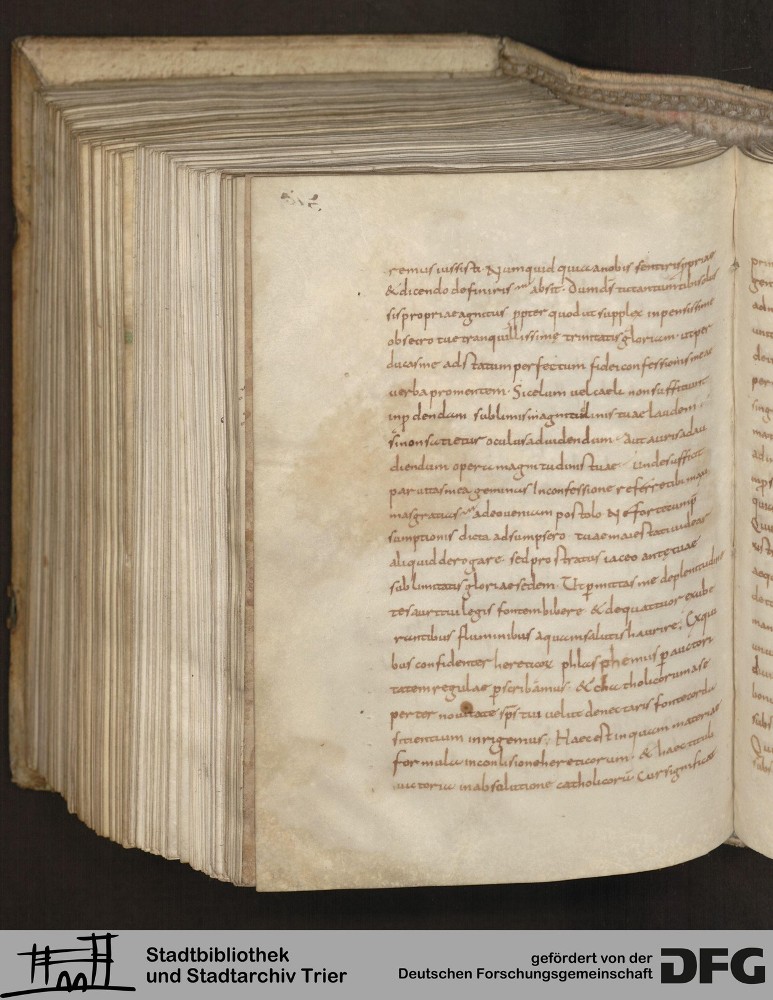 remus iussisti Numquid quia a nobis sentiris pprias
& dicendo definiris absit. Dum ds tu tantum tibi solus
sis propriae agnitus ppter quod ut supplex inpensissime
obsecro tue tranquillissime trinitatis gloriam. ut per
ducas me ad statum perfectum fidei confessionis meae
verba promentem. Si celum vel caeli non sufficiunt
inpdendam sublimis magnitudinis tuae laudem
si non satietur oculus ad videndum. Aut auris ad au
diendum opera magnitudinis tuae. unde sufficit
parvitas mea geminus In confessione referre tibi maxi
mas gratias adeo veniam postolo Ne forte temp
sumptionis dicta adsumpsero. tuae maiestati videar
aliquid derogare. sed prostratus iaceo ante tuae
sublimitatis gloriae sedem. Ut pmittas me de plenitudine
tesauri tui legis fontem bibere. & de quattuor exube
rantibus fluminibus aquam salutis haurire. Ex qui
bus confidenter hereticor phlasphemus p auctori
tatem regulae pscribamus. & catholicorum ase
perter novitate sps tui velut de nectaris fonte corda
scientium inrigemus. Haec est inquam materiae
formula in conlisione hereticorum. & haec tituli
victoria in absolutione catholicorū. Cur significas
Stadtbibliothek
und Stadtarchiv Trier
gefördert von der
Deutschen Forschungsgemeinschaft
DFG